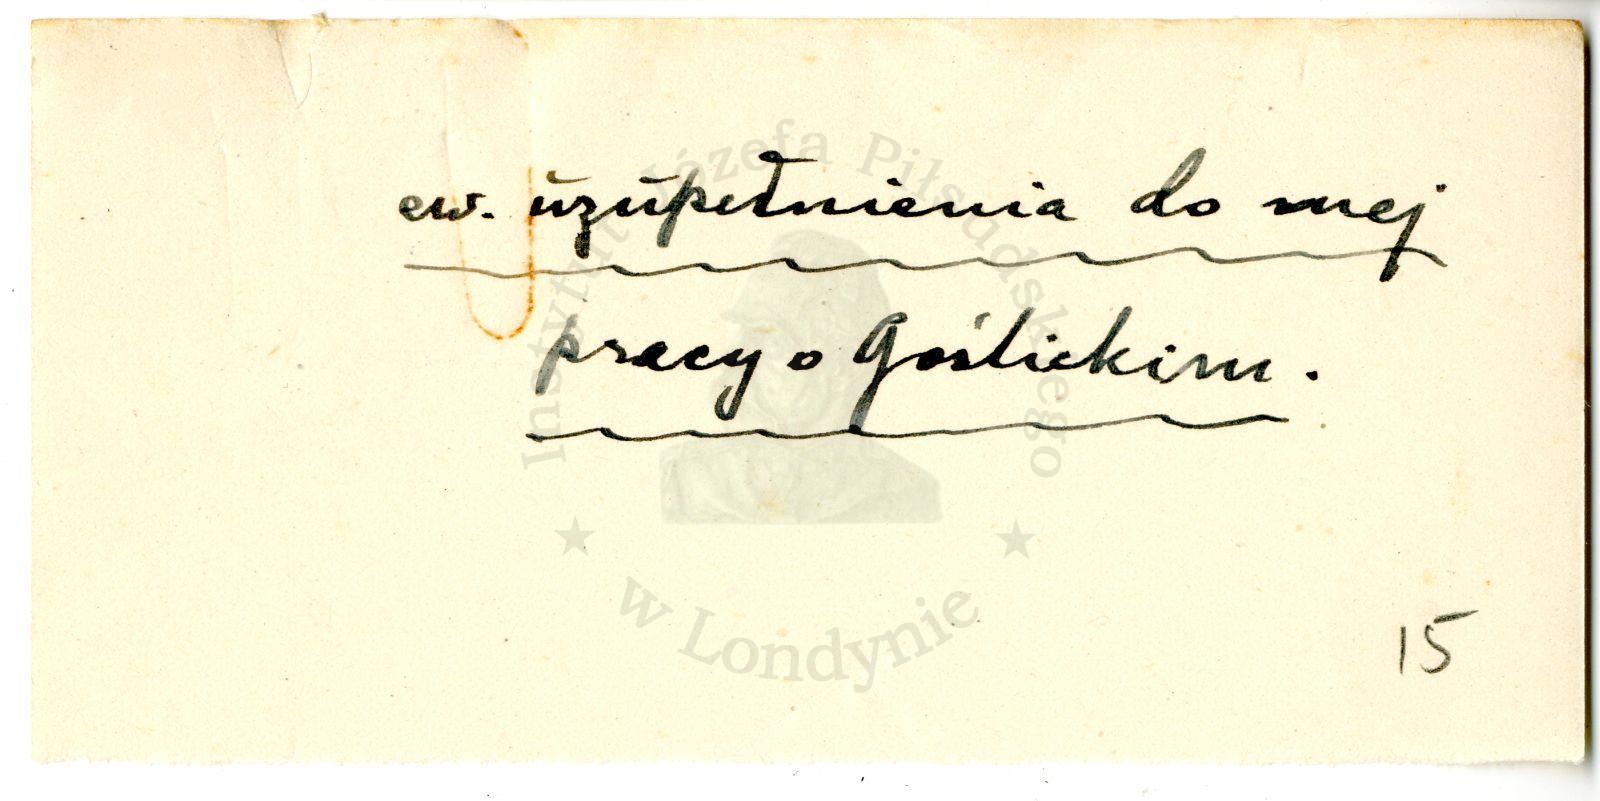 ew. uzupełnienia do mej
pracy o Goślickim.
15
Instytut Józefa Piłsudskiego
w Londynie